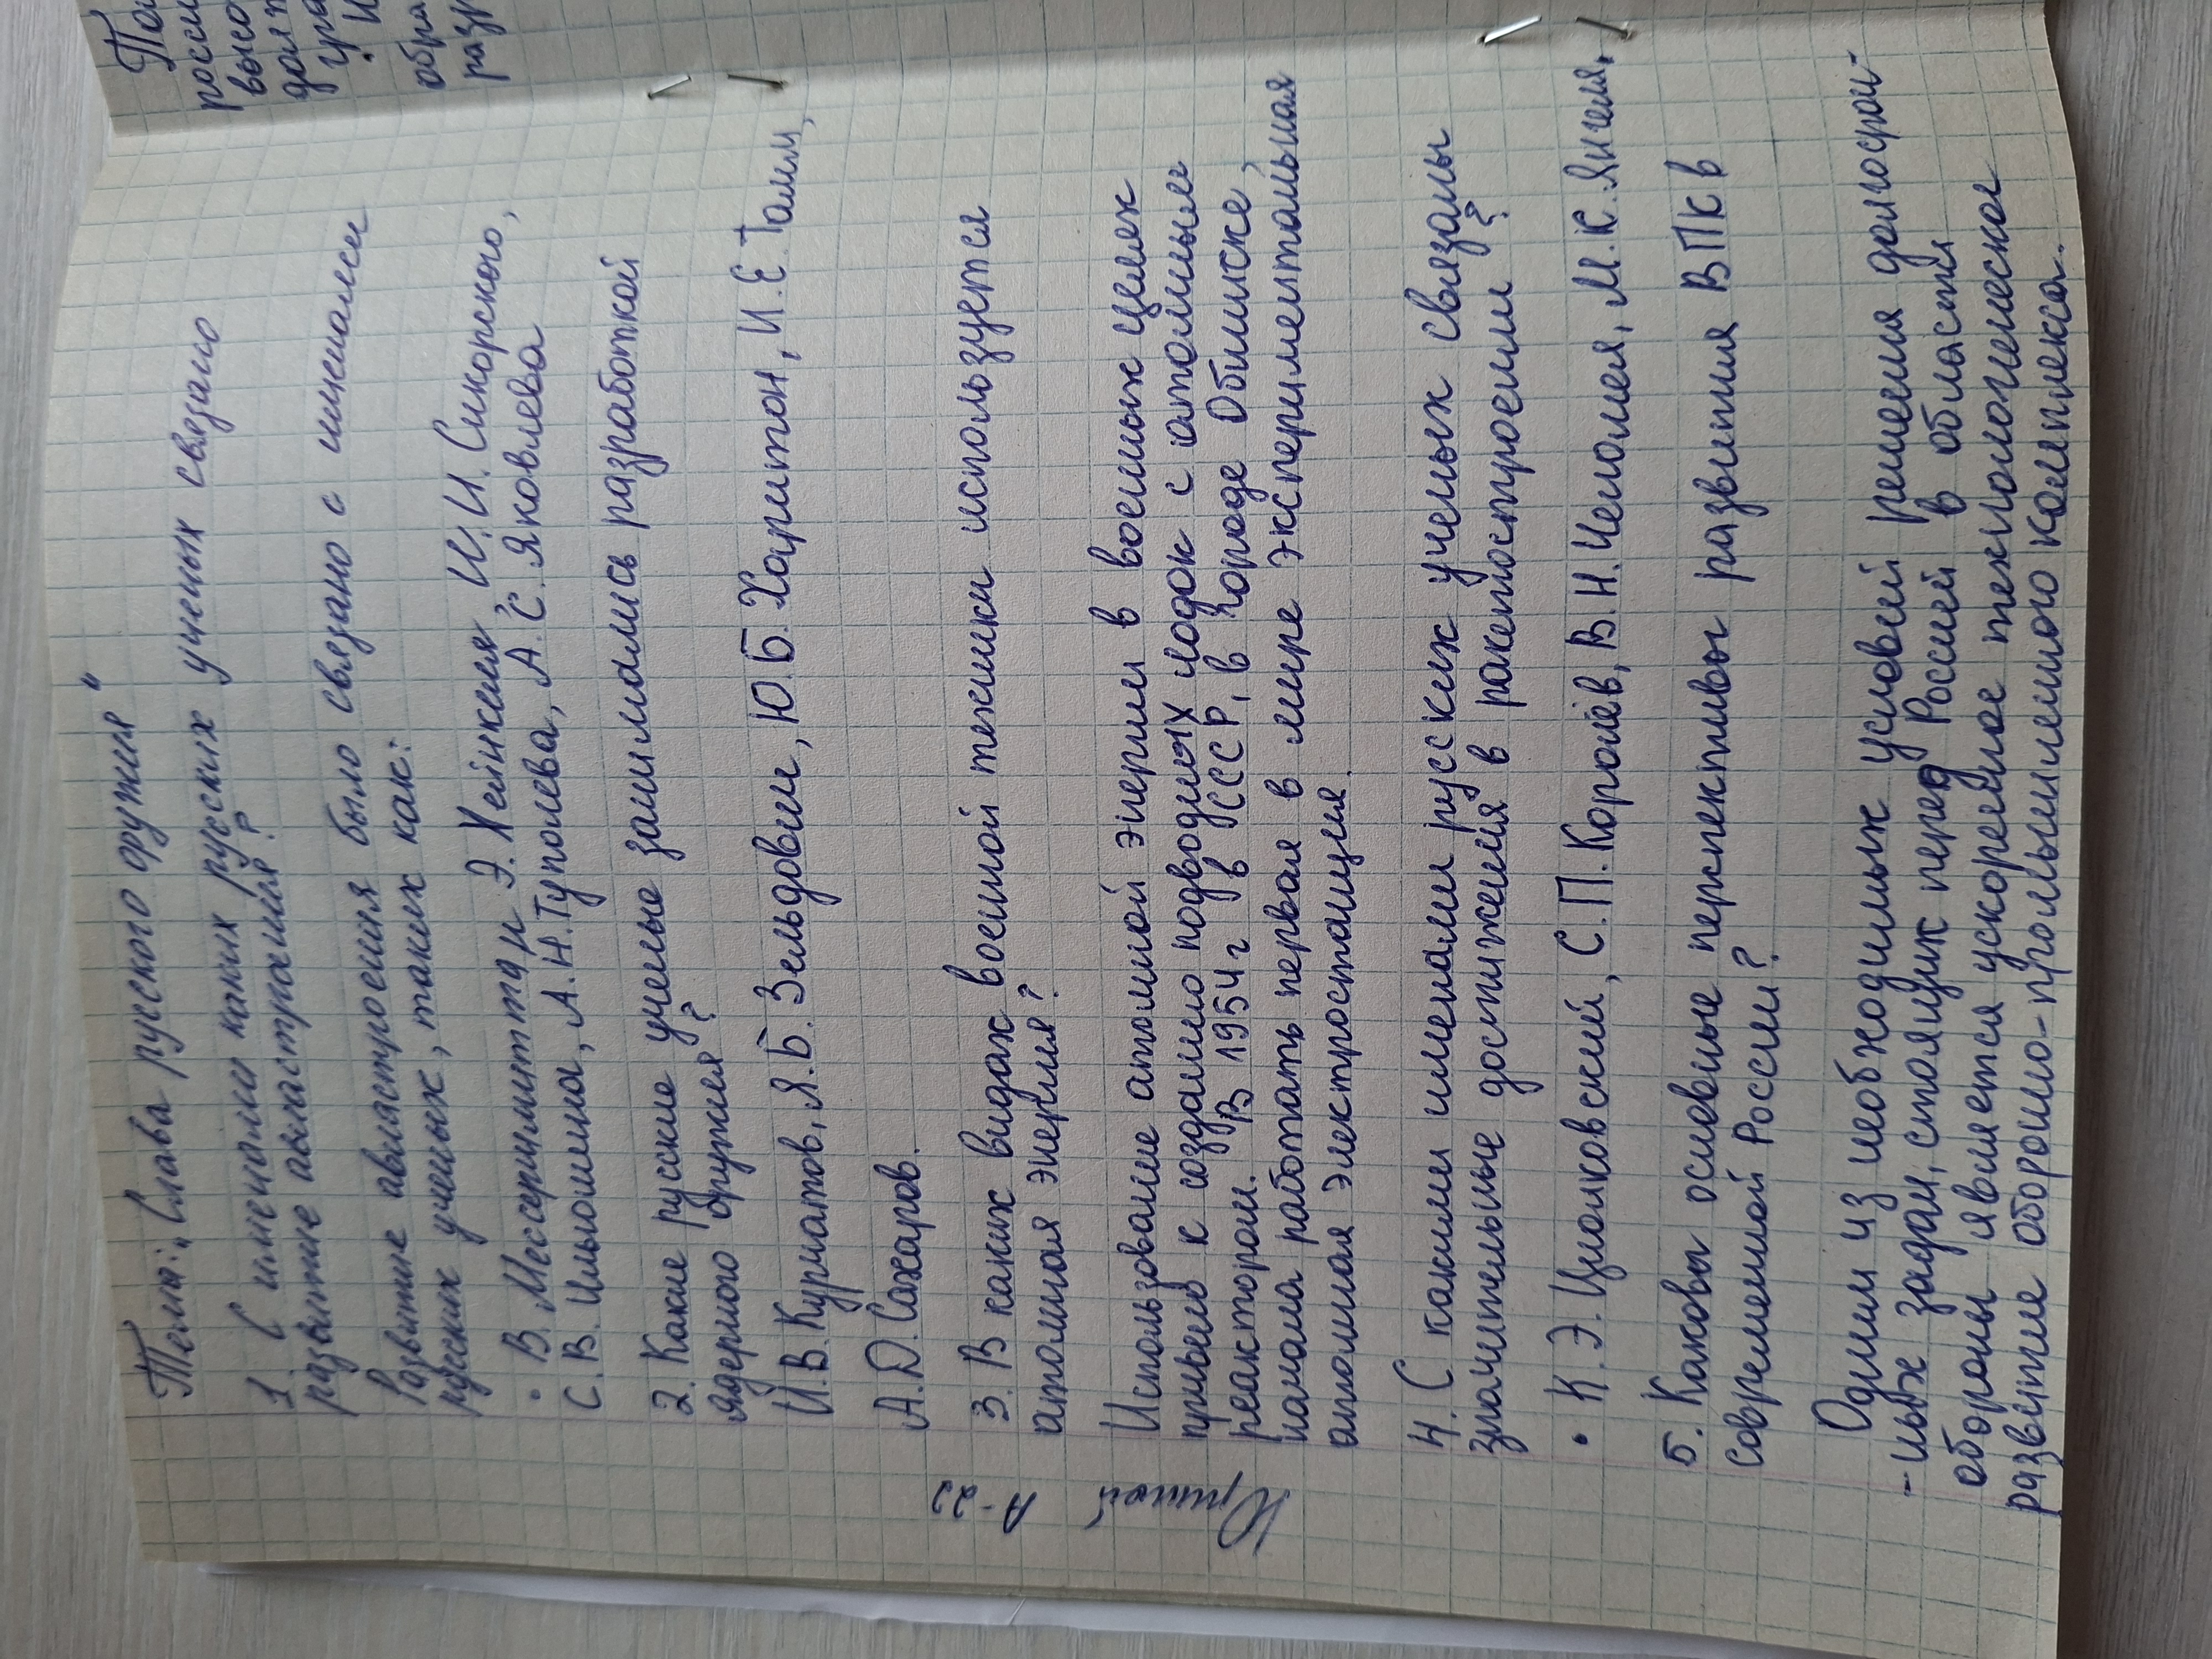 Тема: „Слава руского оружия"
1. С именами каких руских ученых связано
развитие авиастроения?
Развитие авиастроения было связано с именами
русских ученых, таких как:
• В. Мессершмитта, Э. Хейнкеля, И.И. Сикорского,
С.В. Ильюшина, А.Н. Туполева, А.С. Яковлева
2. Какие русские ученые занимались разработкой
ядерного оружия?
И.В. Курчатов, Я.Б. Зельдович, Ю.Б. Харитон, И.Е. Тамм,
А.Д. Сахаров.
3. В каких видах военной техники используется
атомная энергия?
Использование атомной энергии в военных целях
привело к созданию подводных лодок с атомным
реактором. В 1954 г в СССР, в городе Обнинске,
начала работать первая в мире экспериментальная
атомная электростанция.
4. С какими именами русских ученых связаны
значительные достижения в ракетостроении?
• К.Э. Циолковский, С.П. Королёв, В.Н. Челомея, М.К. Янгеля.
5. Каковы основные перспективы развития ВПК в
современной России?
Одним из необходимых условий решения долгосроч-
-ных задач, стоящих перед Россией в области
обороны является ускоренное технологическое
развитие оборонно-промышленного комплекса.
Юрший
А-23
Те
росси
высо
долж
гра
обра
разр